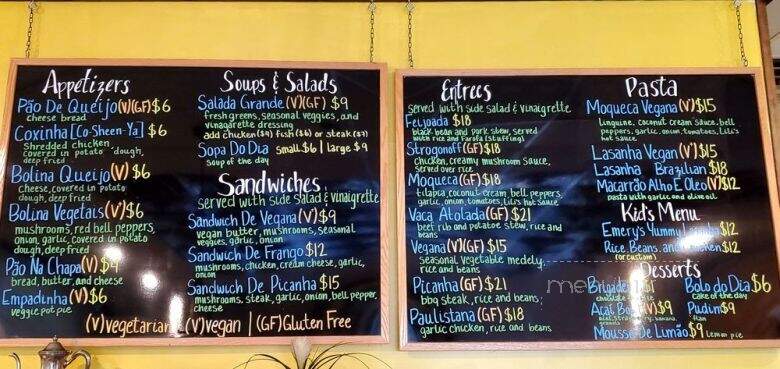 Appetizers
Pão De Queijo (V)(GF) $6
cheese bread
Coxinha [Co-Sheen-Ya] $6
Shredded chicken,
covered in potato dough,
deep fried
Bolina Queijo (V) $6
cheese, covered in potato
dough, deep fried
Bolina Vegetais (V') $6
mushrooms, red bell peppers,
onion, garlic, covered in potato
dough, deep fried
Pão Na Chapa (V) $4
bread, butter, and cheese
Empadinha (V) $6
veggie pot pie
Soups & Salads
Salada Grande (V)(GF) $9
fresh greens, seasonal veggies, and
vinagarette dressing
add chicken ($4) fish ($6) or steak ($7)
Sopa Do Dia small $6 | large $9
soup of the day
Sandwiches
served with side salad & vinaigrette
Sandwich De Vegana (V') $9
vegan butter, mushrooms, seasonal
veggies, garlic, onion
Sandwich De Frango $12
mushrooms, chicken, cream cheese, garlic,
onion
Sandwich De Picanha $15
mushrooms, steak, garlic, onion, bell pepper,
cheese
(V) vegetarian (V') vegan | (GF) Gluten Free
Entrees
served with side salad & vinaigrette
Feijoada $18
black bean and pork stew, served
with rice and farofa (stuffing)
Strogonoff (GF) $18
chicken, creamy mushroom sauce,
served over rice
Moqueca (GF) $18
tilapia, coconut cream, bell peppers,
garlic, onion, tomatoes, Lili's hot sauce
Vaca Atolada (GF) $21
beef rib and potatoe stew, rice and
beans
Vegana (V') (GF) $15
seasonal vegetable medely,
rice and beans
Picanha (GF) $21
bbq steak, rice and beans,
Paulistana (GF) $18
garlic chicken, rice and beans
Pasta
Moqueca Vegana (V') $15
Linguine, coconut cream sauce, bell
peppers, garlic, onion, tomatoes, Lili's
hot sauce
Lasanha Vegan (V') $15
Lasanha Brazilian $18
Macarrão Alho E Oleo (V') $12
pasta with garlic and olive oil
Kid's Menu
Emery's Yummy $12
Rice, Beans, and Chicken $12
(or custom)
Desserts
Brigadeiro $1
chocolate
Açaí Bowl (V') $9
acai, strawberry, banana,
granola
Mousse De Limão $9 lemon pie
Bolo do Dia $6
cake of the day
Pudim $9
flan